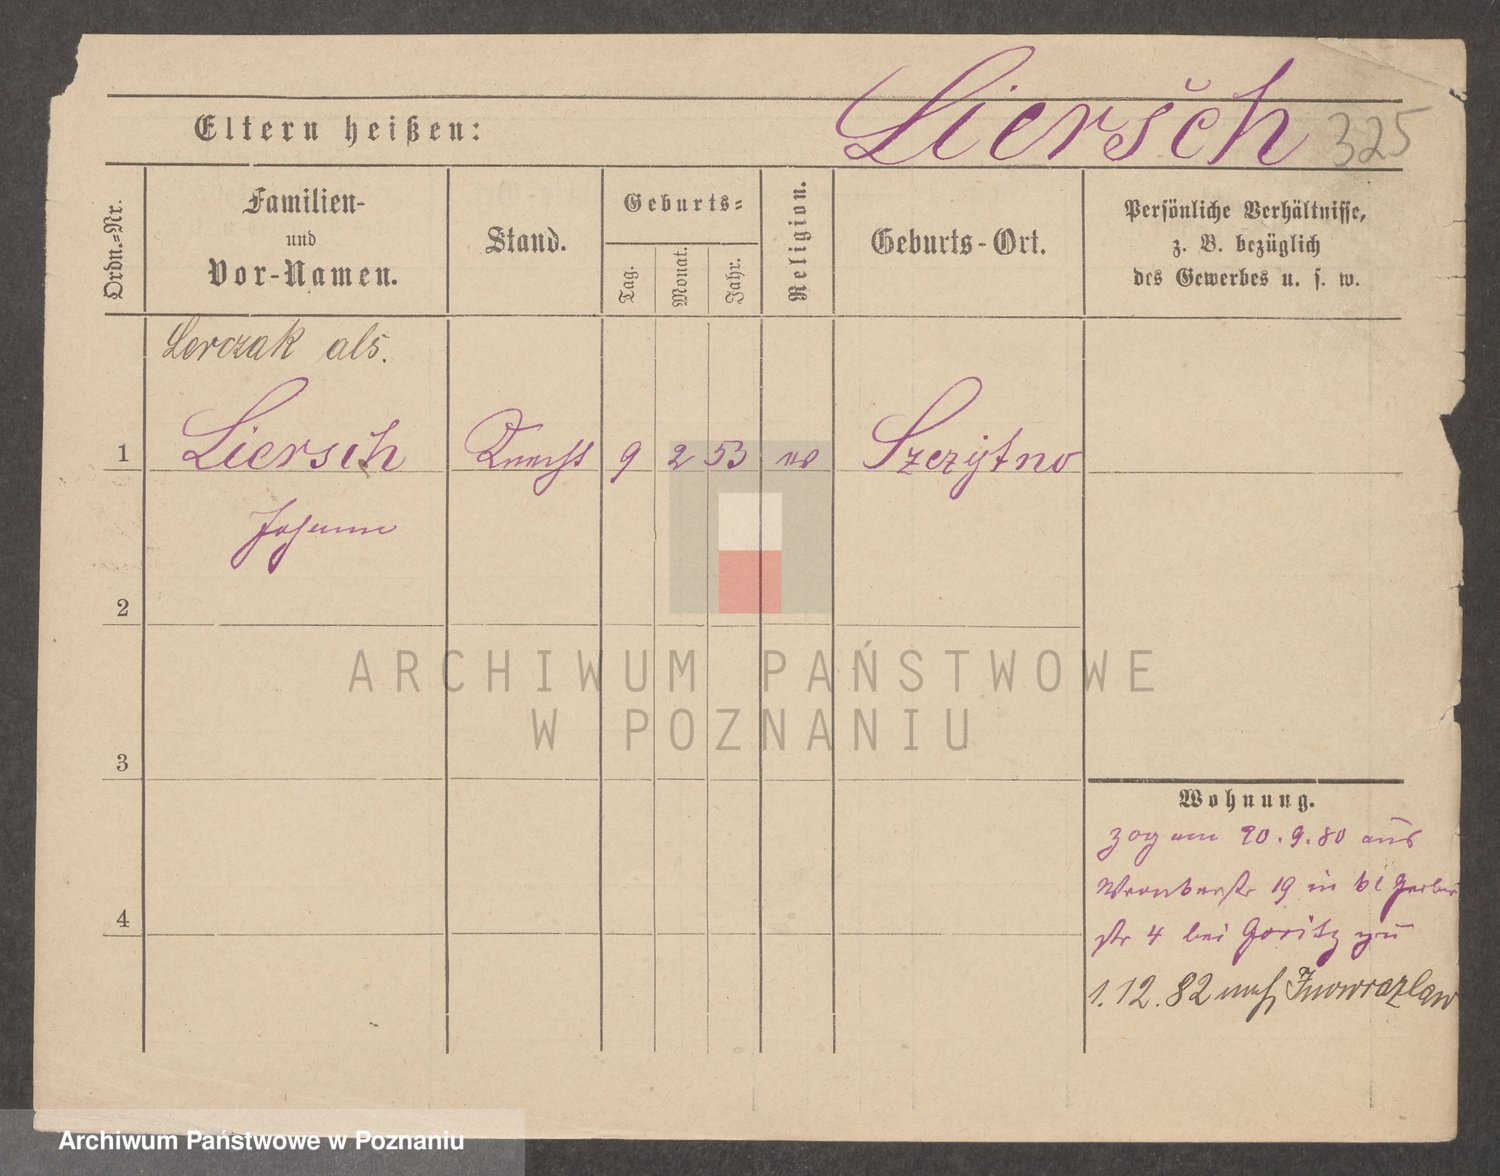 Liersch 325
Eltern heißen:
Ordn.=Nr.
Familien-
und
Vor-Namen.
Stand.
Geburts=
Tag.
Monat.
Jahr.
Religion.
Geburts-Ort.
Persönliche Verhältnisse,
z. B. bezüglich
des Gewerbes u. s. w.
Lerczak als.
1 Liersch Knecht 9 2 53 Szczytno
Johann
2
3
4
Wohnung.
zog am 20.9.80 aus
Wronkerstr 19 in kl Gerber
str 4 bei Goritz zu
1.12.82 nach Inowrazlaw
ARCHIWUM PAŃSTWOWE
W POZNANIU
Archiwum Państwowe w Poznaniu